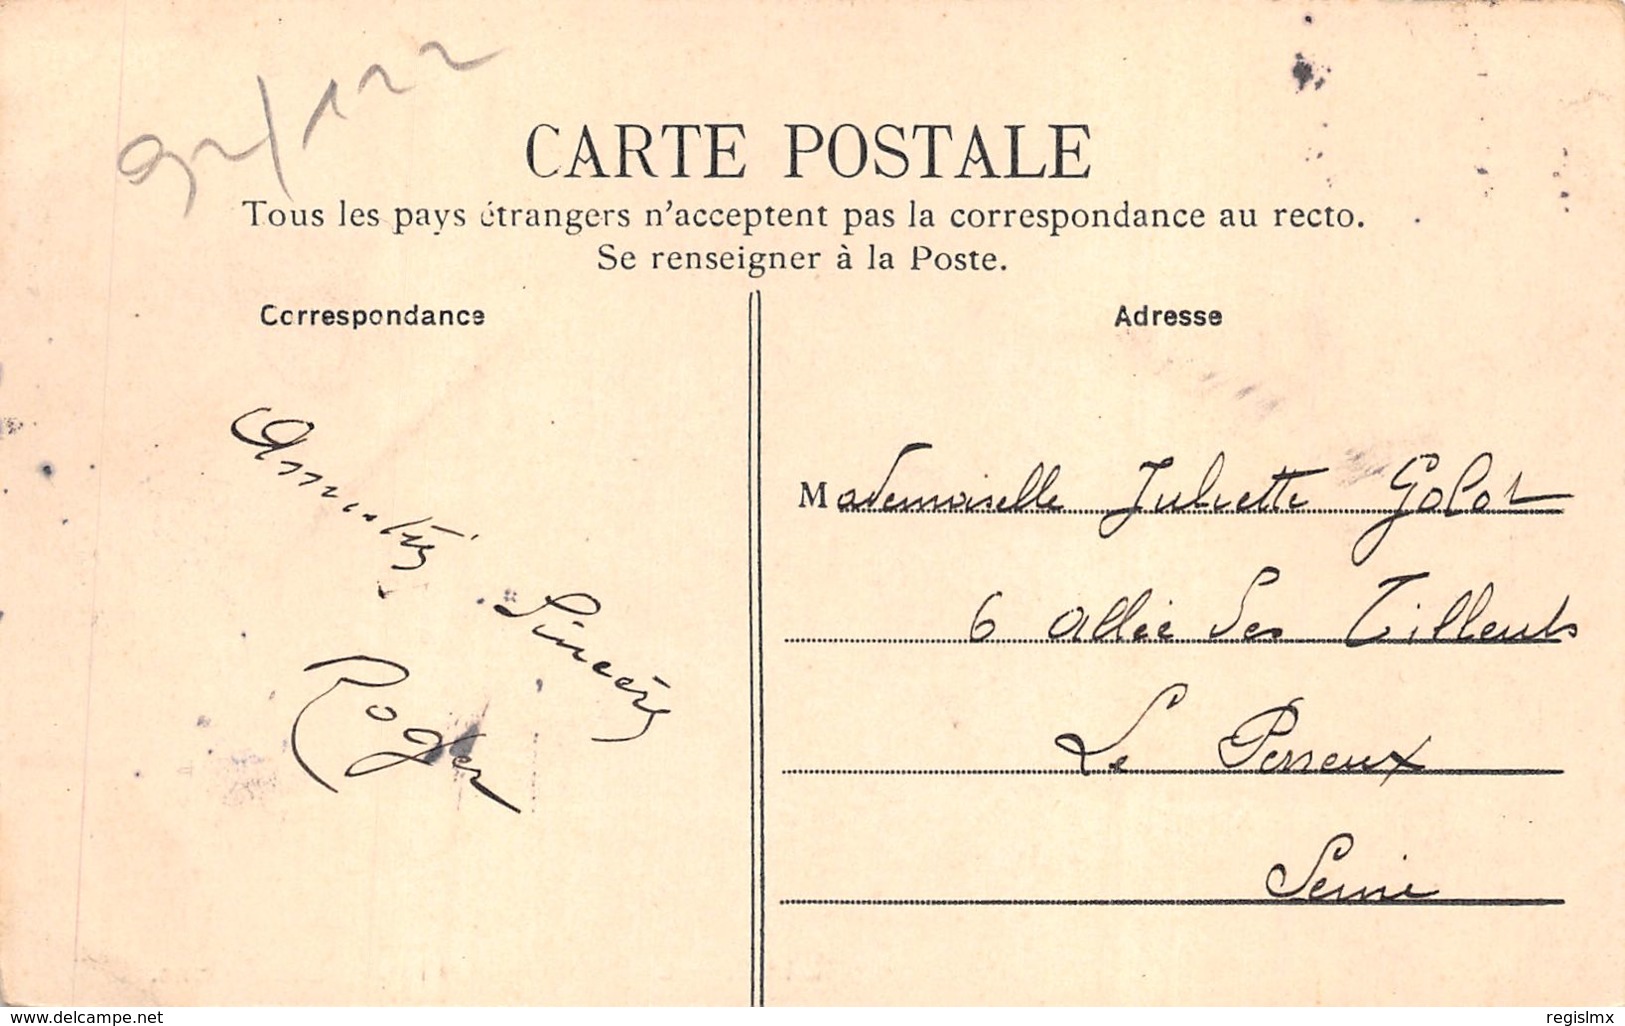 92/122
CARTE POSTALE
Tous les pays étrangers n'acceptent pas la correspondance au recto.
Se renseigner à la Poste.
Correspondance
Amitiés
Sincères
Roger
Adresse
Mademoiselle Juliette Golot
6 allée des Tilleuls
Le Perreux
Seine
www.delcampe.net
regislmx